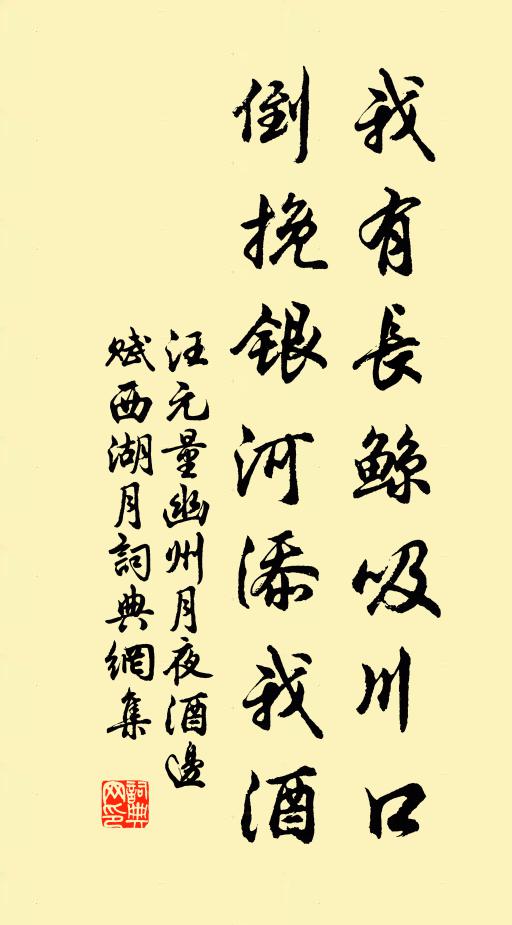 我有長鲸吸川口
倒挽銀河添我酒
汪元量幽州月夜酒邊
赋西湖月詞典網集
詞典
网印